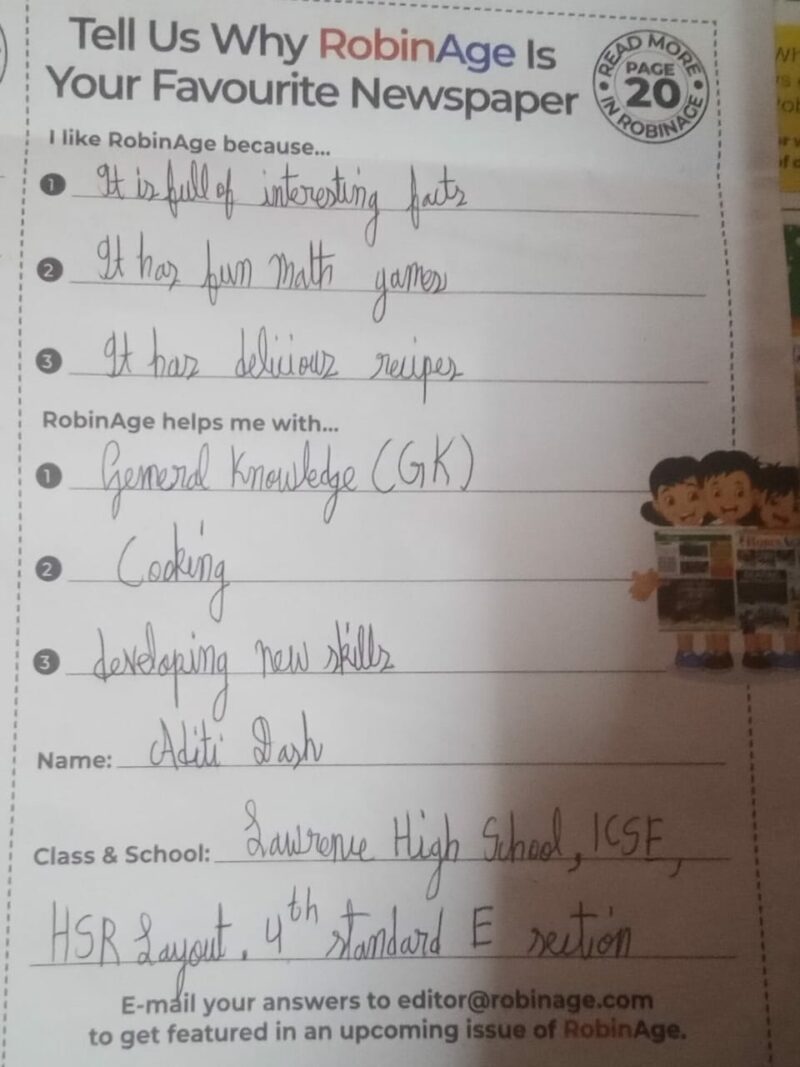 Tell Us Why RobinAge Is
Your Favourite Newspaper
READ MORE
PAGE
20
IN ROBINAGE
I like RobinAge because...
1 It is full of interesting facts
2 It has fun math games
3 It has delicious recipes
RobinAge helps me with...
1 General Knowledge (GK)
2 Cooking
3 developing new skills
Name: Aditi Dash
Class & School: Lawrence High School, ICSE,
HSR Layout. 4th standard E section
E-mail your answers to editor@robinage.com
to get featured in an upcoming issue of RobinAge.